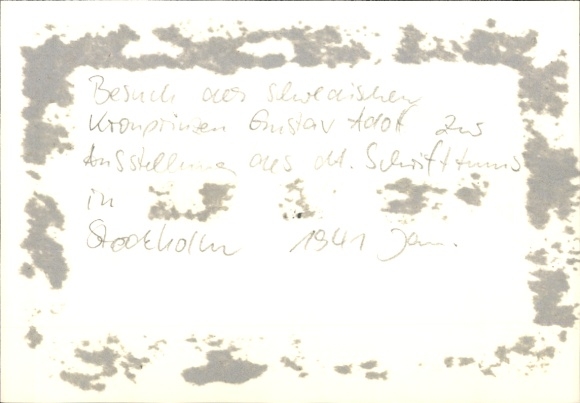 Besuch des schwedischen
Kronprinzen Gustav Adolf zur
Ausstellung des dt. Schrifttums
in
Stockholm 1941 Jan.